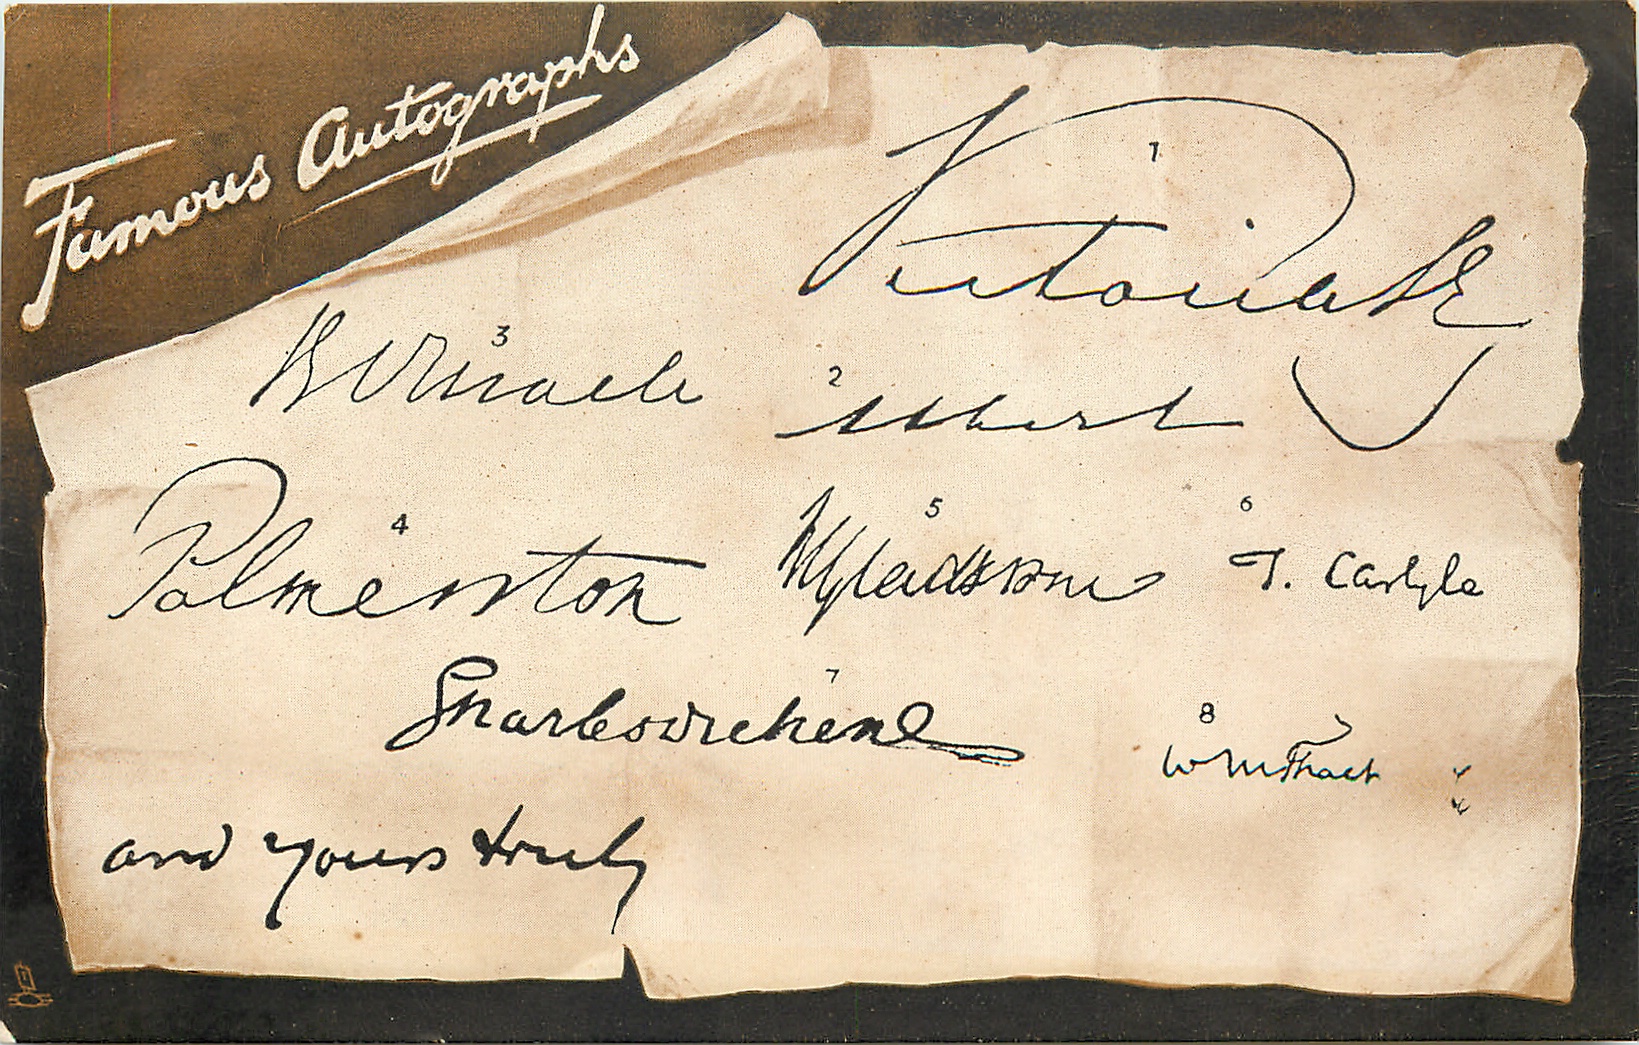 Famous Autographs
1
Victoria R
3
BDisraeli
2
Albert
4
Palmerston
5
WGladstone
6
T. Carlyle
7
Charles Dickens
8
W M Thack
and yours truly